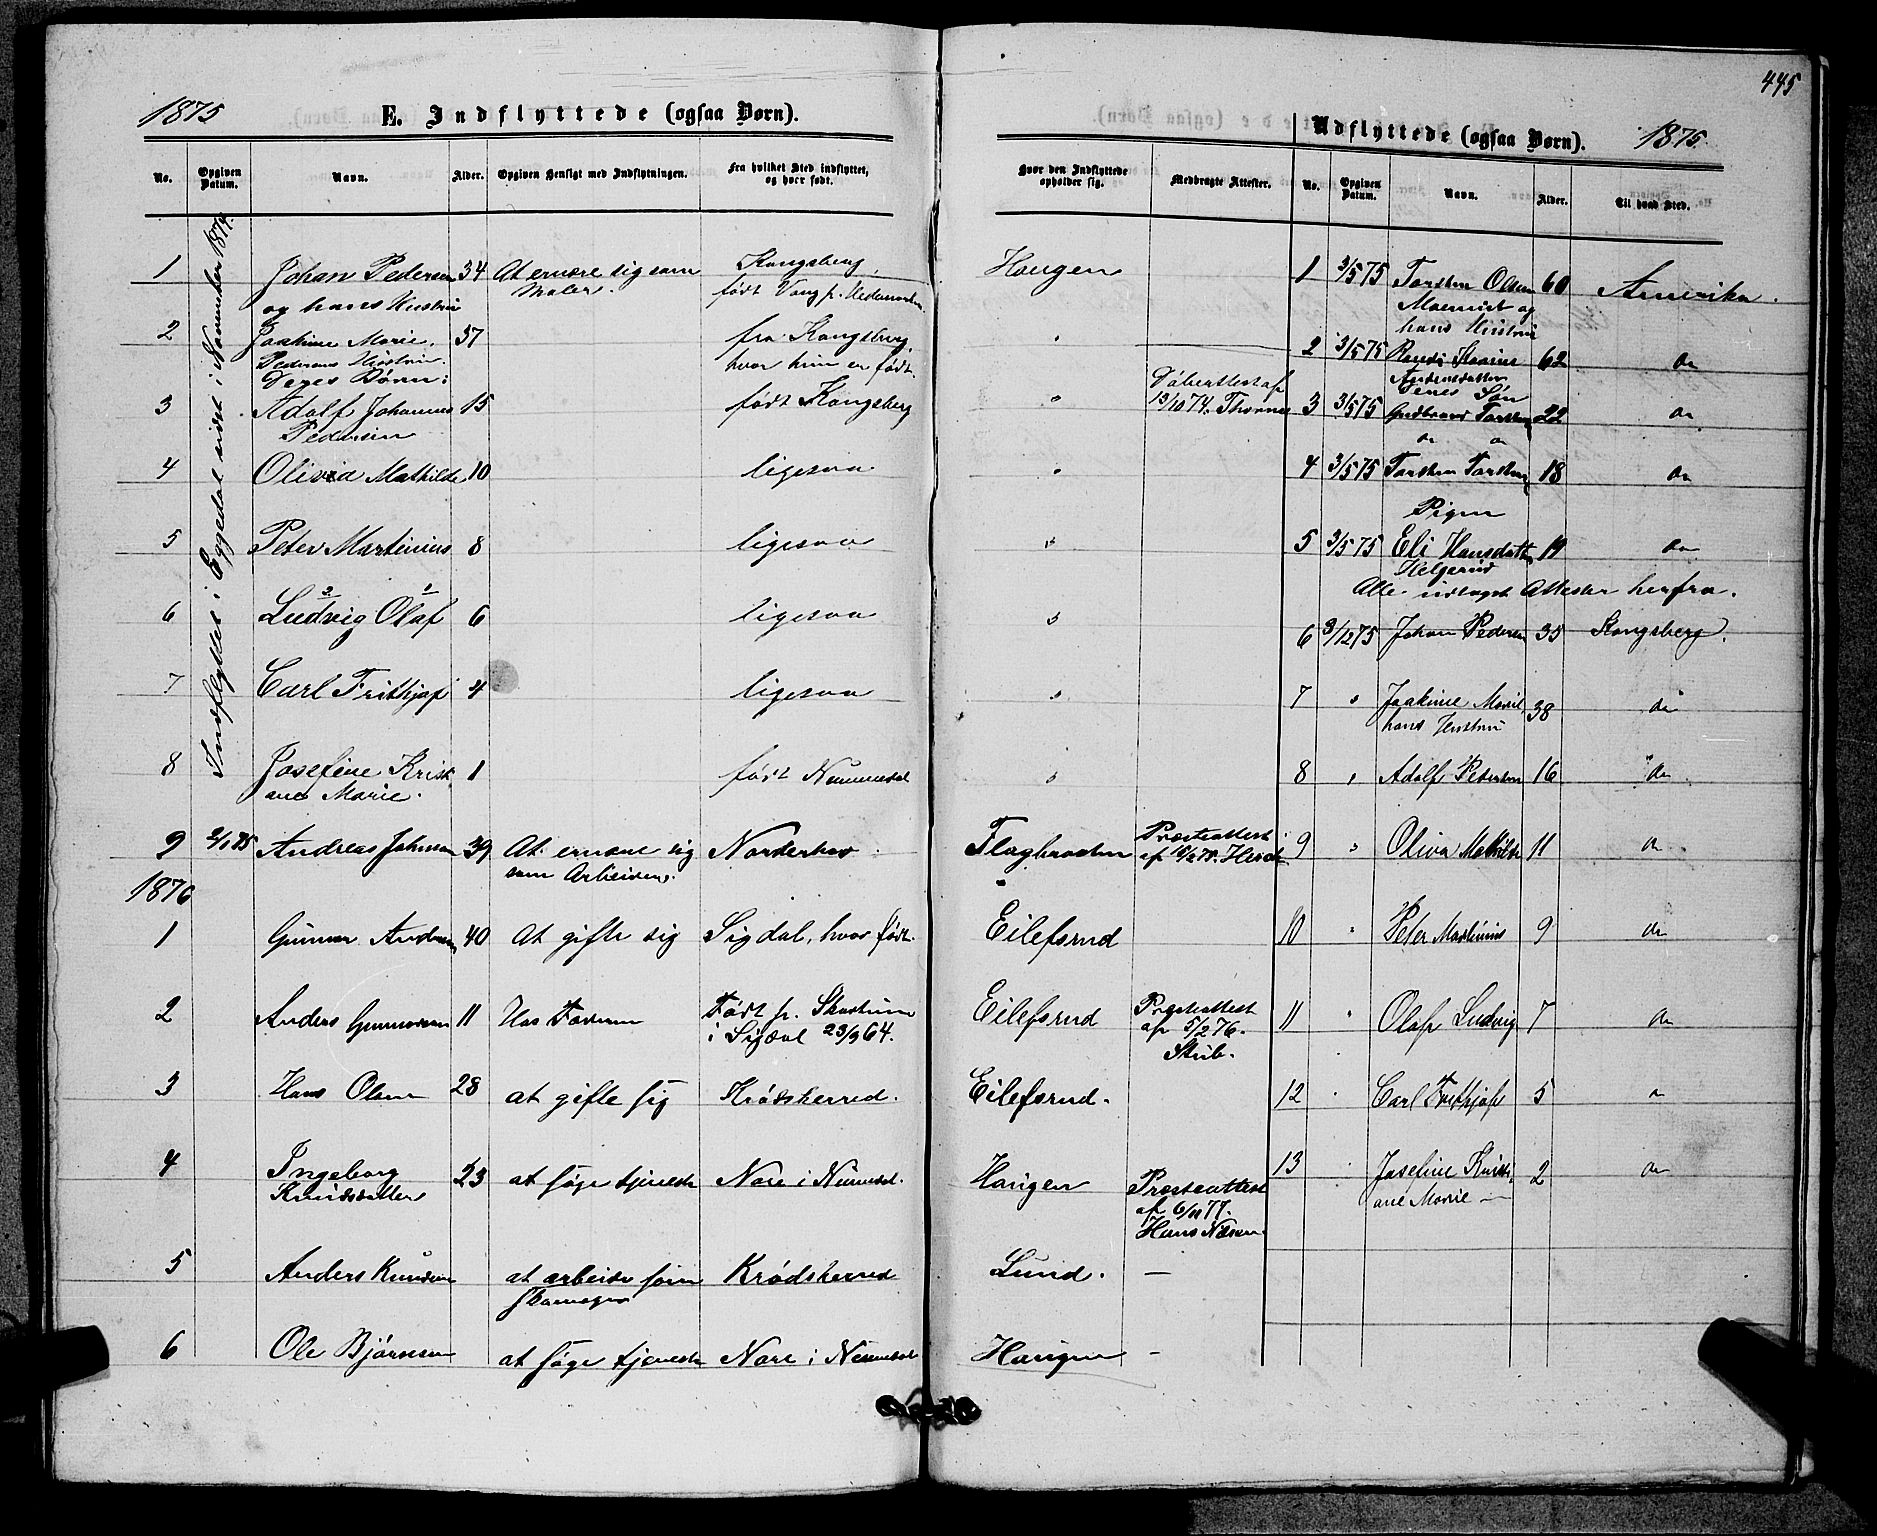 445
1875
E. Indflyttede (ogsaa Børn).
No.
Opgiven Datum.
Navn.
Alder.
Opgiven Hensigt med Indflytningen.
Fra hvilket Sted indflyttet, og hvor født.
Hvor den Indflyttede opholder sig.
Medbragte Attester.
Indflyttet i Eggedal sidst i November 1874.
1 Johan Pedersen 34 At ernære sig som Kongsberg, Haugen
og hans Hustru Maler. født Vang p. Hedemarken
2 Joakime Marie, 37 fra Kongsberg, "
Pedersens Hustru. hvor hun er født.
Deres Børn:
3 Adolf Johannes 15 født Kongsberg " Dåbsattest af
Pedersen 13/10 74. Thornes
4 Olivia Mathilde 10 ligesaa "
5 Peter Martinius 8 ligesaa "
2 1
6 Ludvig Olaf 6 ligesaa "
7 Carl Frithjof 4 ligesaa "
8 Josefine Kristi 1 født Nummedal "
ane Marie.
9 Andreas Johnsen 39 At ernære sig Norderhov Præsteattest
som Arbeider. af
1876
1 Gunnar Andersen 40 At gifte sig Sigdal, hvor født. Eilefsrud
2 Anders Gunnarsen 11 Hos Faderen Født p. Eilefsrud Præsteattest
i Sigdal 23/9 64. af 5/2 76.
Skub.
3 Hans Olsen 28 at gifte sig Krødsherred. Eilefsrud.
4 Ingeborg 23 at søge tjeneste Nore i Nummedal. Haugen Præsteattest
Knudsdatter af 6/11 77.
Hans
5 Anders Knudsen at arbeide som Krødsherred Lund. —
Skomager
6 Ole Bjørnsen at søge tjeneste Nore i Nummedal Haugen —
Udflyttede (ogsaa Børn). 1875.
No.
Opgiven Datum.
Navn.
Alder.
Til hvad Sted.
1 3/5 75 Torsten Olsen 60 Amerika.
Moenrist og
hans Hustru
2 3/5 75 62 do
Andersdatter
Deres Søn
3 3/5 75 Gudbrand Torstens 22 do
do do
4 3/5 75 Torsten Torstens 18 do
Pigen
5 3/5 75 Eli Hansdatter 19 do
Helgerud
Alle udtaget Attester herfra.
6 3/12 75 Johan Pedersen 35 Kongsberg.
7 " Joakime Marie 38 do
hans Hustru
8 " Adolf Pedersen 16 do
9 " Oliva Mathilde 11 do
10 " Peter Martinius 9 do
11 " Olaf Ludvig 7 do
12 " Carl Frithjof 5 do
13 " Josefine Kristi 2 do
ane Marie —